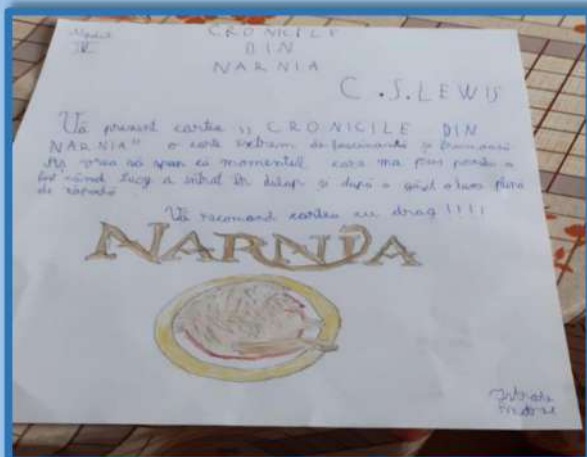 CRONICILE
DIN
NARNIA
C.S.LEWIS
Vă prezint cartea ,, CRONICILE DIN
NARNIA" o carte extrem de fascinantă și frumoasă
Aș vrea să spun că momentul care ma pus pe
fost când Lucy a intrat în dulap și după a găsit o lume plină
de zăpadă
Vă recomand cartea cu drag !!!!
NARNIA